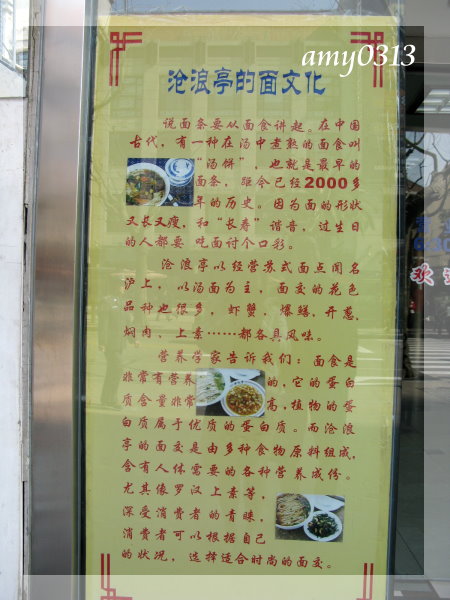 amy0313
沧浪亭的面文化
说面条要从面食讲起。在中国
古代，有一种在汤中煮熟的面食叫
“汤饼”，也就是最早的
面条，距今已经2000多
年的历史。因为面的形状
又长又瘦，和“长寿”谐音，过生日
的人都要 吃面讨个口彩。
沧浪亭以经营苏式面点闻名
沪上，以汤面为主，面交的花色
品种也很多，虾蟹，爆鳝，开葱，
焖肉，上素……都各具风味。
营养学家告诉我们：面食是
非常有营养的，它的蛋白
质含量非常高，植物的蛋
白质属于优质的蛋白质。而沧浪
亭的面交是由多种食物原料组成，
含有人体需要的各种营养成份。
尤其像罗汉上素等，
深受消费者的青睐，
消费者可以根据自己
的状况，选择适合时尚的面交。
欢